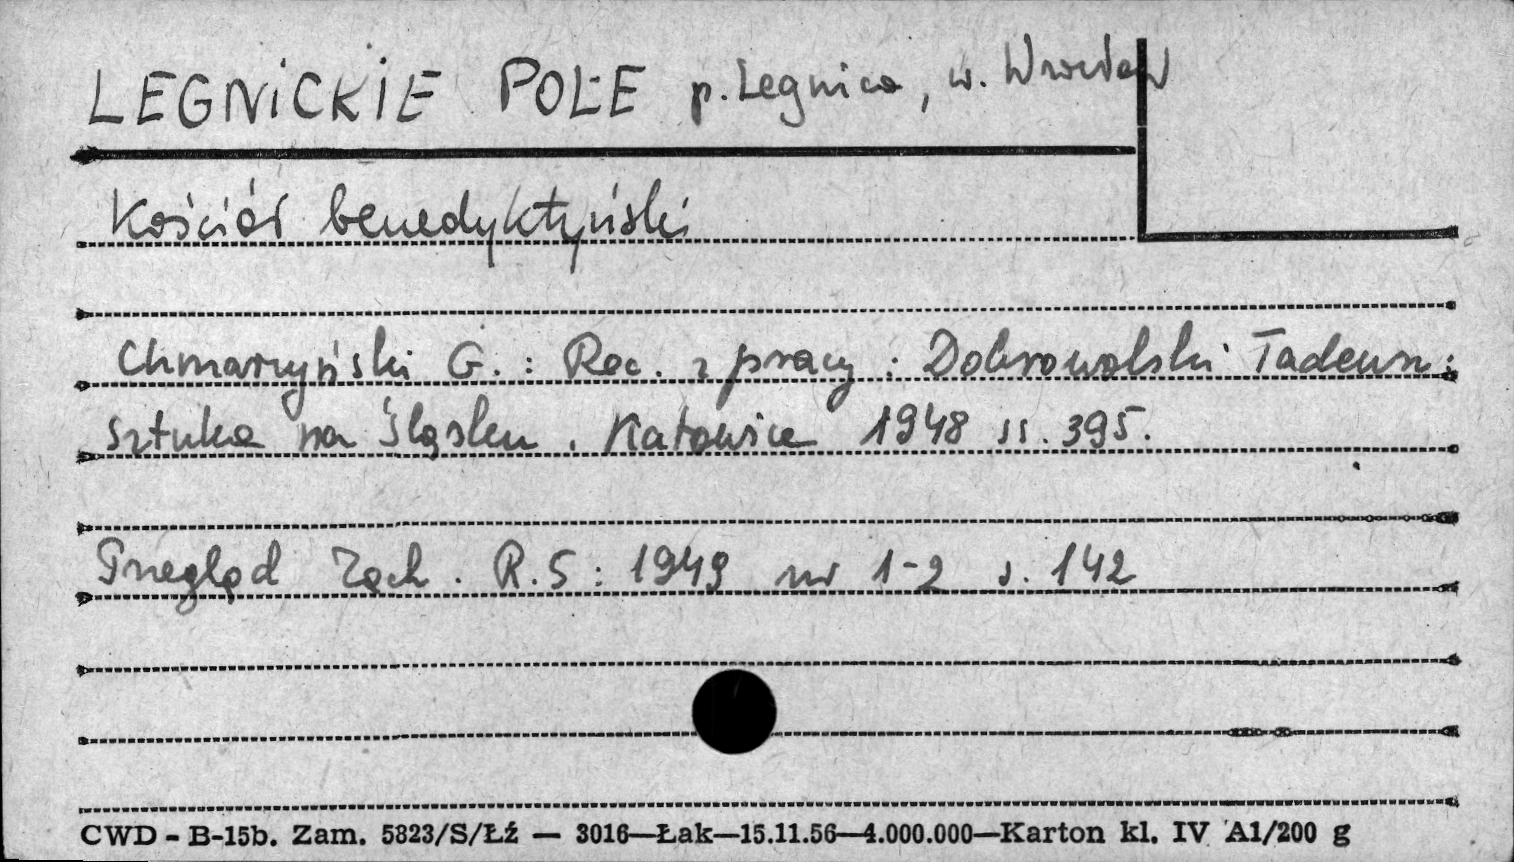 LEGNICKIE POLE p. Legnica, w. Wrocław
Kościół benedyktyński
Chmarzyński G. : Rec. z pracy : Dobrowolski Tadeusz :
Sztuka na Śląsku . Katowice 1948 ss. 395.
Przegląd Zach . R. 5 : 1949 nr 1-2 s. 142
CWD - B-15b. Zam. 5823/S/Łź — 3016—Łak—15.11.56—4.000.000—Karton kl. IV A1/200 g